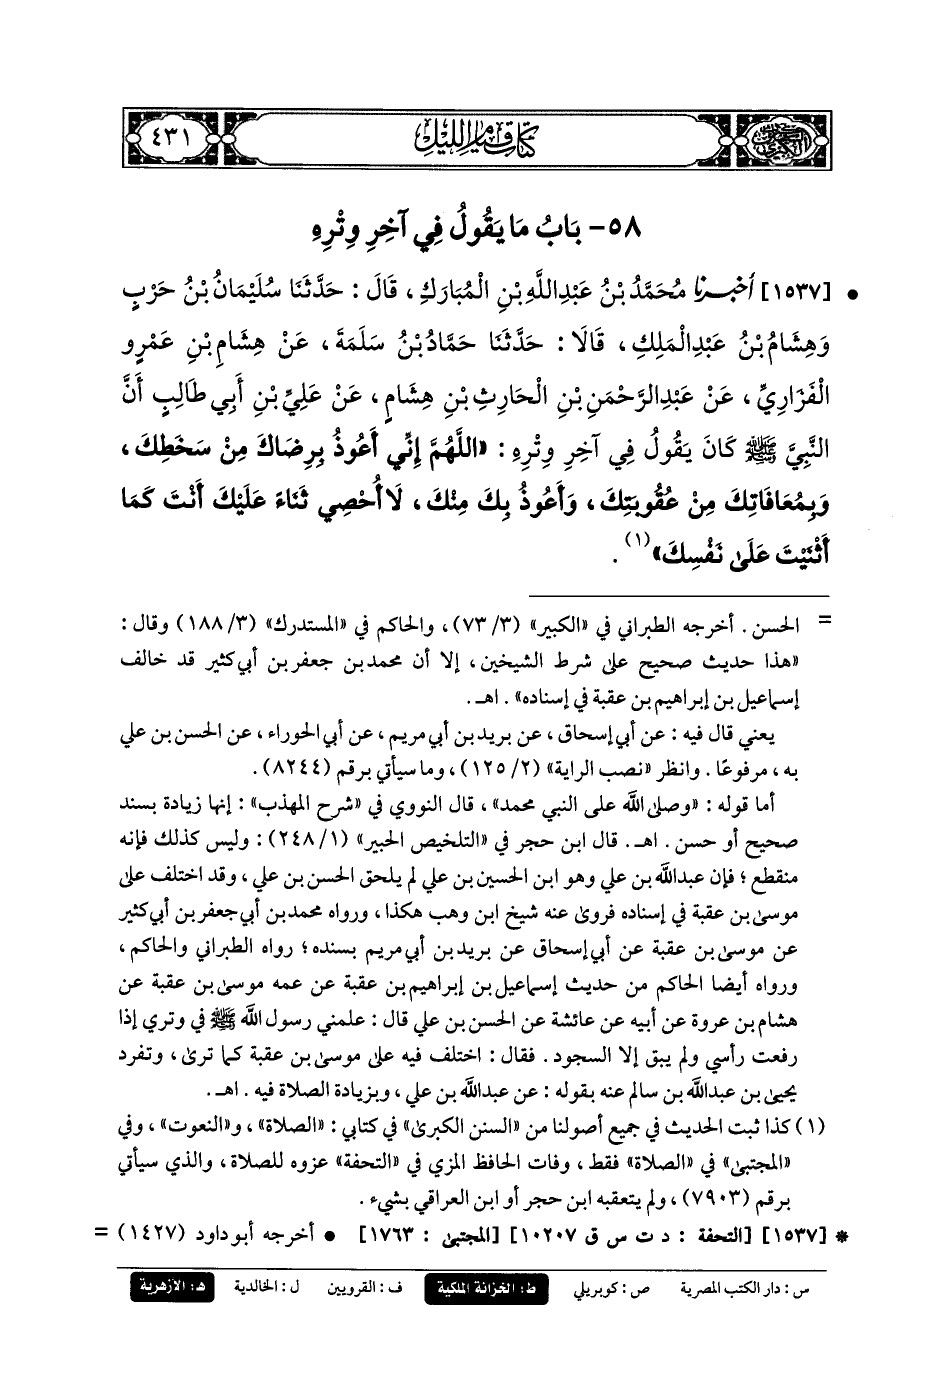 السنن الكبرى
كتاب قيام الليل
٤٣١
٥٨- بَابُ مَا يَقُولُ فِي آخِرِ وِتْرِهِ
• [١٥٣٧] أَخْبَرَنَا مُحَمَّدُ بْنُ عَبْدِاللَّهِ بْنِ الْمُبَارَكِ، قَالَ : حَدَّثَنَا سُلَيْمَانُ بْنُ حَرْبٍ
وَهِشَامُ بْنُ عَبْدِالْمَلِكِ، قَالَا : حَدَّثَنَا حَمَّادُ بْنُ سَلَمَةَ، عَنْ هِشَامِ بْنِ عَمْرٍو
الْفَزَارِيِّ، عَنْ عَبْدِالرَّحْمَنِ بْنِ الْحَارِثِ بْنِ هِشَامٍ، عَنْ عَلِيِّ بْنِ أَبِي طَالِبٍ أَنَّ
النَّبِيَّ ﷺ كَانَ يَقُولُ فِي آخِرِ وِتْرِهِ : «اللَّهُمَّ إِنِّي أَعُوذُ بِرِضَاكَ مِنْ سَخَطِكَ،
وَبِمُعَافَاتِكَ مِنْ عُقُوبَتِكَ، وَأَعُوذُ بِكَ مِنْكَ، لَا أُحْصِي ثَنَاءً عَلَيْكَ أَنْتَ كَمَا
أَثْنَيْتَ عَلَى نَفْسِكَ»(١).
= الحسن. أخرجه الطبراني في «الكبير» (٣/ ٧٣)، والحاكم في «المستدرك» (٣/ ١٨٨) وقال :
«هذا حديث صحيح على شرط الشيخين، إلا أن محمد بن جعفر بن أبي كثير قد خالف
إسماعيل بن إبراهيم بن عقبة في إسناده». اهـ.
يعني قال فيه : عن أبي إسحاق، عن بريد بن أبي مريم، عن أبي الحوراء، عن الحسن بن علي
به، مرفوعًا. وانظر «نصب الراية» (٢/ ١٢٥)، وما سيأتي برقم (٨٢٤٤).
أما قوله : «وصلى الله على النبي محمد»، قال النووي في «شرح المهذب» : إنها زيادة بسند
صحيح أو حسن. اهـ. قال ابن حجر في «التلخيص الحبير» (١/ ٢٤٨) : وليس كذلك فإنه
منقطع؛ فإن عبدالله بن علي وهو ابن الحسين بن علي لم يلحق الحسن بن علي، وقد اختلف على
موسى بن عقبة في إسناده فروى عنه شيخ ابن وهب هكذا، ورواه محمد بن أبي جعفر بن أبي كثير
عن موسى بن عقبة عن أبي إسحاق عن بريد بن أبي مريم بسنده؛ رواه الطبراني والحاكم،
ورواه أيضا الحاكم من حديث إسماعيل بن إبراهيم بن عقبة عن عمه موسى بن عقبة عن
هشام بن عروة عن أبيه عن عائشة عن الحسن بن علي قال : علمني رسول الله ﷺ في وتري إذا
رفعت رأسي ولم يبق إلا السجود. فقال : اختلف فيه على موسى بن عقبة كما ترى، وتفرد
يحيى بن عبدالله بن سالم عنه بقوله : عن عبدالله بن علي، وبزيادة الصلاة فيه. اهـ.
(١) كذا ثبت الحديث في جميع أصولنا من «السنن الكبرى» في كتابي : «الصلاة»، و«النعوت»، وفي
«المجتبى» في «الصلاة» فقط، وفات الحافظ المزي في «التحفة» عزوه للصلاة، والذي سيأتي
برقم (٧٩٠٣)، ولم يتعقبه ابن حجر أو ابن العراقي بشيء.
* [١٥٣٧] [التحفة : د ت س ق ١٠٢٠٧] [المجتبى : ١٧٦٣] • أخرجه أبو داود (١٤٢٧) =
س : دار الكتب المصرية ص : كوبريلي ط : الخزانة الملكية ف : القرويين ل : الخالدية هـ : الأزهرية